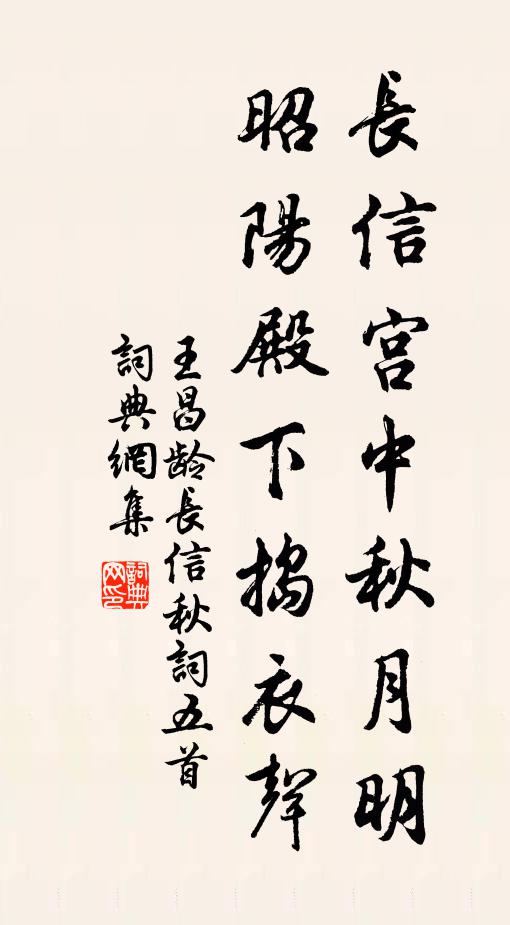 長信宫中秋月明
昭陽殿下搗衣聲
王昌龄長信秋詞五首
詞典網集
詞典网印